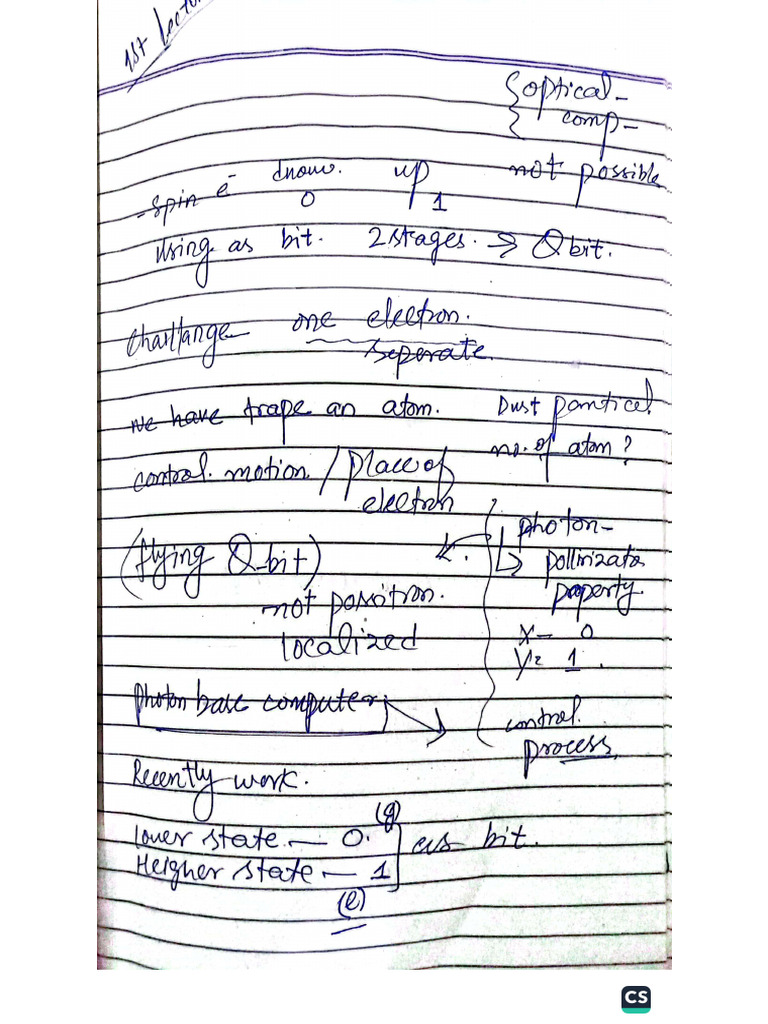 1st Lectur
{ optical-
comp-
not possible
- spin e̅ dnow. up
0 1
Using as bit. 2 stages. → Qbit.
Challange one electron.
seperate.
we have trape an atom. Dust particel.
no. of atom?
control. motion / place of
electron
photon-
↳ pollirizata
paperty.
(flying Q-bit)
not possitron.
localized
X- 0
Y= 1.
photon base computer
control.
process.
Recently work.
lower state - 0. (g)
Heigher state - 1 ] as bit.
(e)
CS